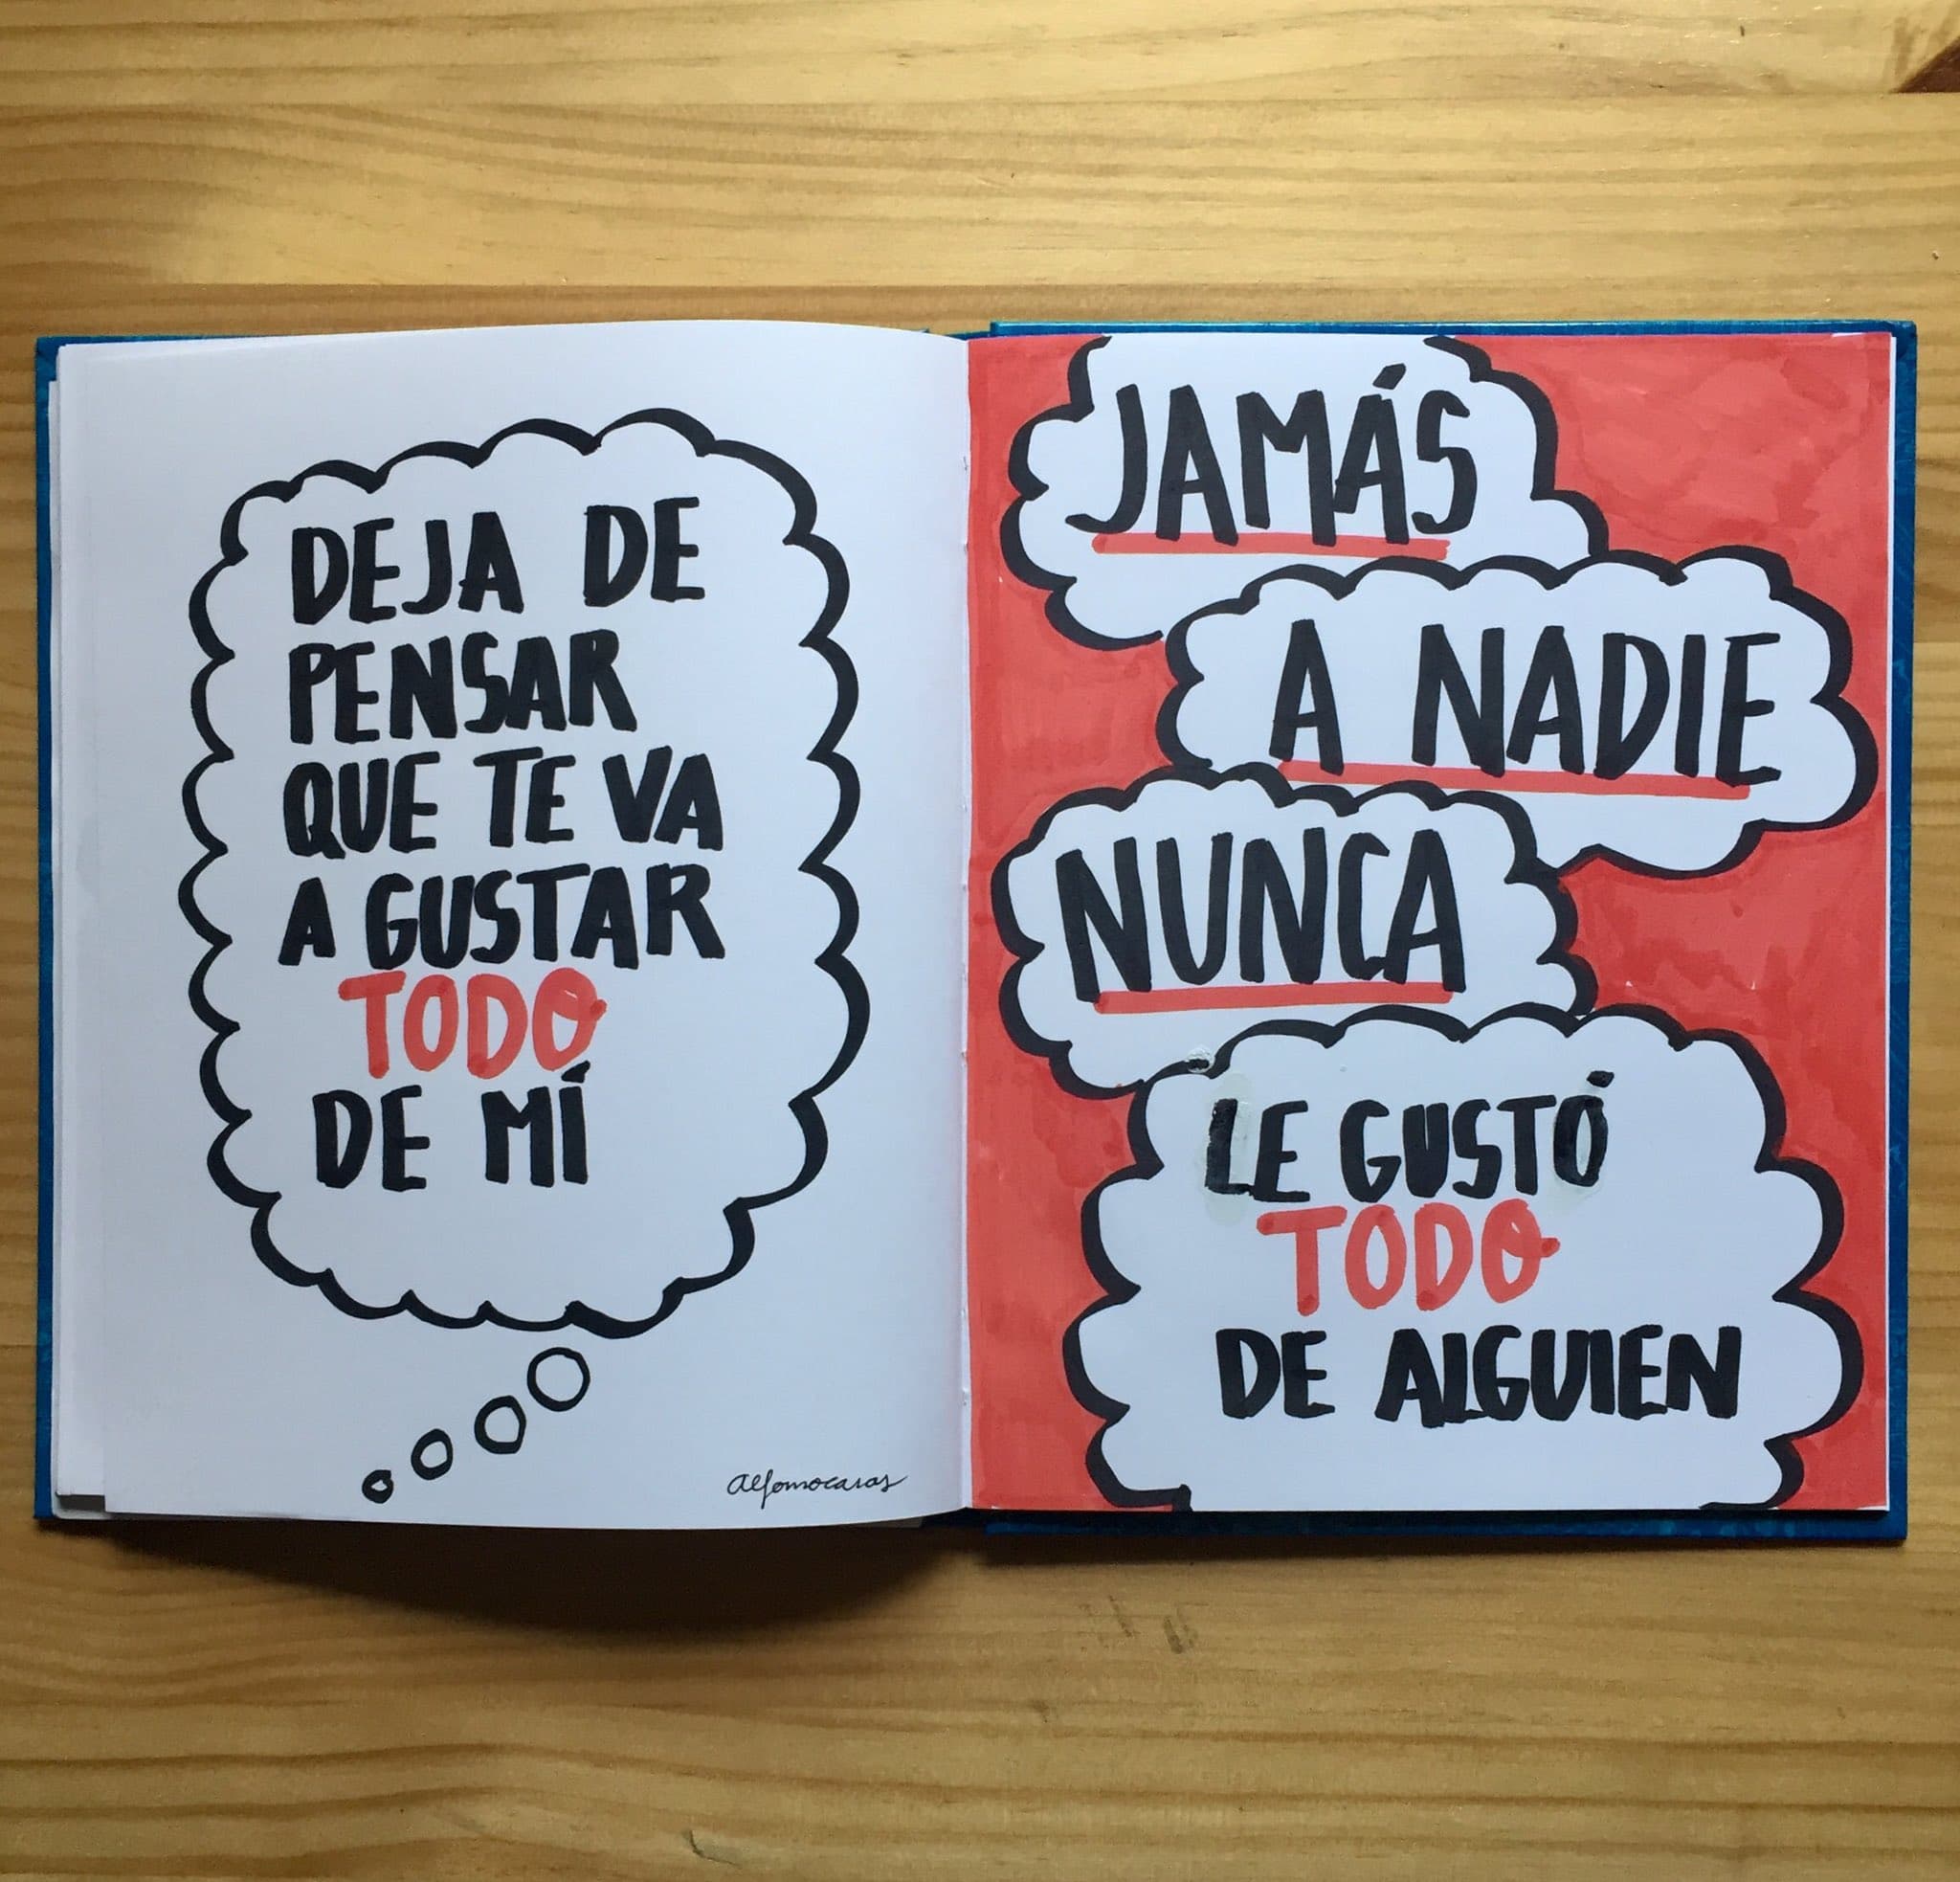 DEJA DE
PENSAR
QUE TE VA
A GUSTAR
TODO
DE MÍ
alfonsocasas
JAMÁS
A NADIE
NUNCA
LE GUSTÓ
TODO
DE ALGUIEN